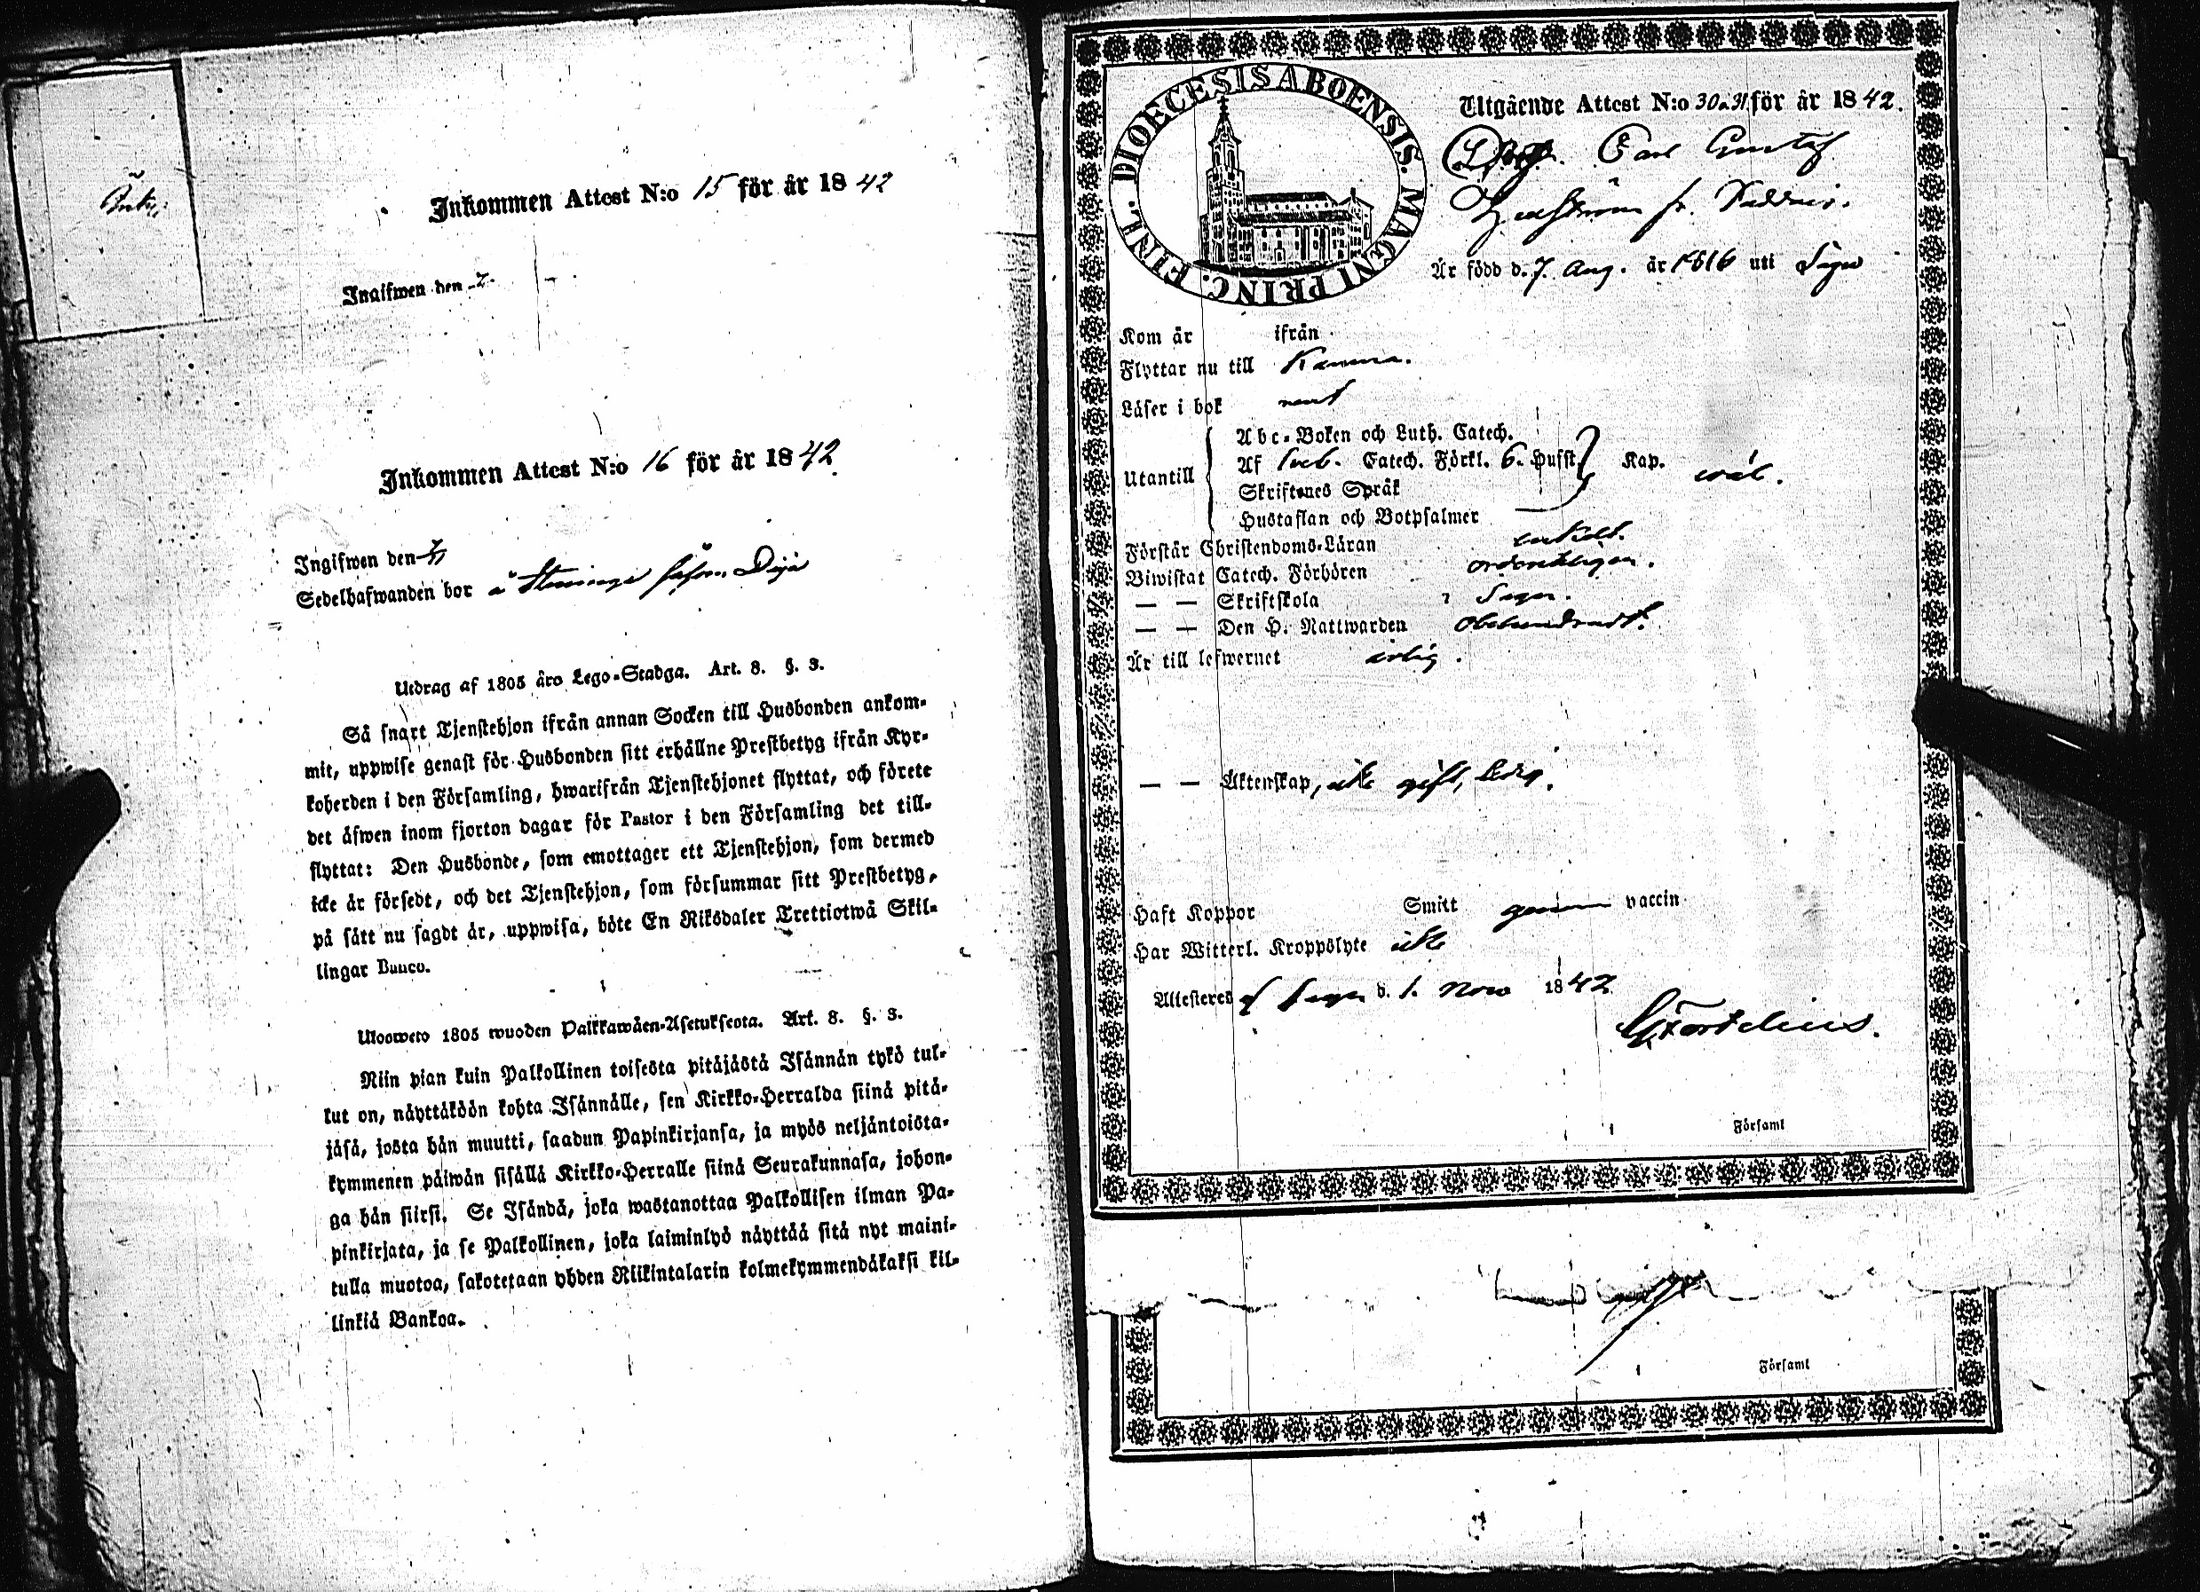 Inkommen Attest N:o 15 för år 1842
Ingifwen den
Inkommen Attest N:o 16 för år 1842.
Ingifwen den
Sedelhafwanden bor å
Utdrag af 1805 års Lego-Stadga. Art. 8. §. 3.
Så snart Tjenstehjon ifrån annan Socken till Husbonden ankom-
mit, uppwise genast för Husbonden sitt erhållne Prestbetyg ifrån Kyr-
koherden i den Församling, hwarifrån Tjenstehjonet flyttat, och förete
det äfwen inom fjorton dagar för Pastor i den Församling det till-
flyttat: Den Husbonde, som emottager ett Tjenstehjon, som dermed
icke är försedt, och det Tjenstehjon, som försummar sitt Prestbetyg,
på sätt nu sagdt är, uppwisa, böte En Riksdaler Trettiotwå Skil-
lingar Banco.
Ulosweto 1805 wuoden Palkkawäen-Asetuksesta. Art. 8. §. 3.
Niin pian kuin Palkollinen toisesta pitäjästä Isännän tykö tul-
lut on, näyttäköön kohta Isännälle, sen Kirkko-Herralda siinä pitä-
jäsä, josta hän muutti, saadun Papinkirjansa, ja myös neljäntoista-
kymmenen päiwän sisällä Kirkko-Herralle siinä Seurakunnasa, johon-
ga hän siirsi. Se Isändä, joka wastanottaa Palkollisen ilman Pa-
pinkirjata, ja se Palkollinen, joka laiminlyö näyttää sitä nyt maini-
tulla muotoa, sakotetaan yhden Riikintalarin kolmekymmendäkaksi kil-
linkiä Bankoa.
DIOECESIS ABOENSIS. MAGNI PRINC. FINL.
Utgående Attest N:o 30 a 31 för år 1842.
Carl Gustaf
Är född d. 7. Aug. år 1816 uti
Kom år ifrån
Flyttar nu till
Läser i bok
Utantill
Abc-Boken och Luth. Catech.
Af Sveb. Catech. Förkl. 6. Hufst. Kap. wäl.
Skriftenes Språk
Hustaflan och Botpsalmer
Förstår Christendoms-Läran enkelt.
Biwistat Catech. Förhören ordentligen.
— — Skriftskola
— — Den H. Nattwarden obehindradt.
Är till lefwernet ärlig.
— — Äktenskap, icke gift, ledig.
Haft Koppor Smitt genom vaccin
Har Witterl. Kroppslyte icke
Attesteras af d. 1. Nov 1842
Församl
Församl